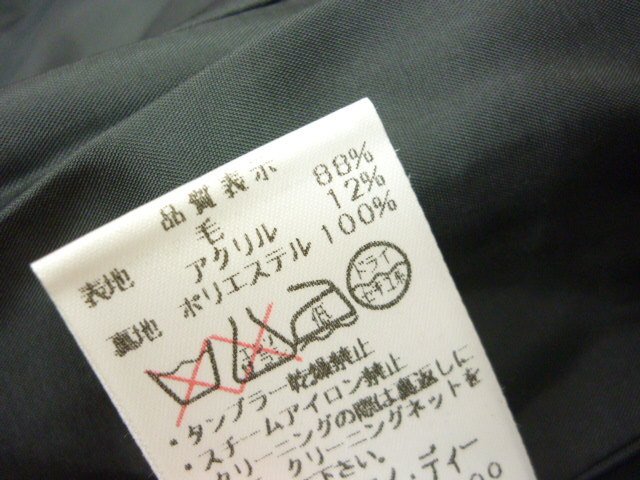 品質表示
表地 毛 88%
アクリル 12%
裏地 ポリエステル 100%
低 ドライ セキユ系
・タンブラー乾燥禁止
・スチームアイロン禁止
クリーニングの際は裏返しに
クリーニングネットを
下さい。
ン・ディー